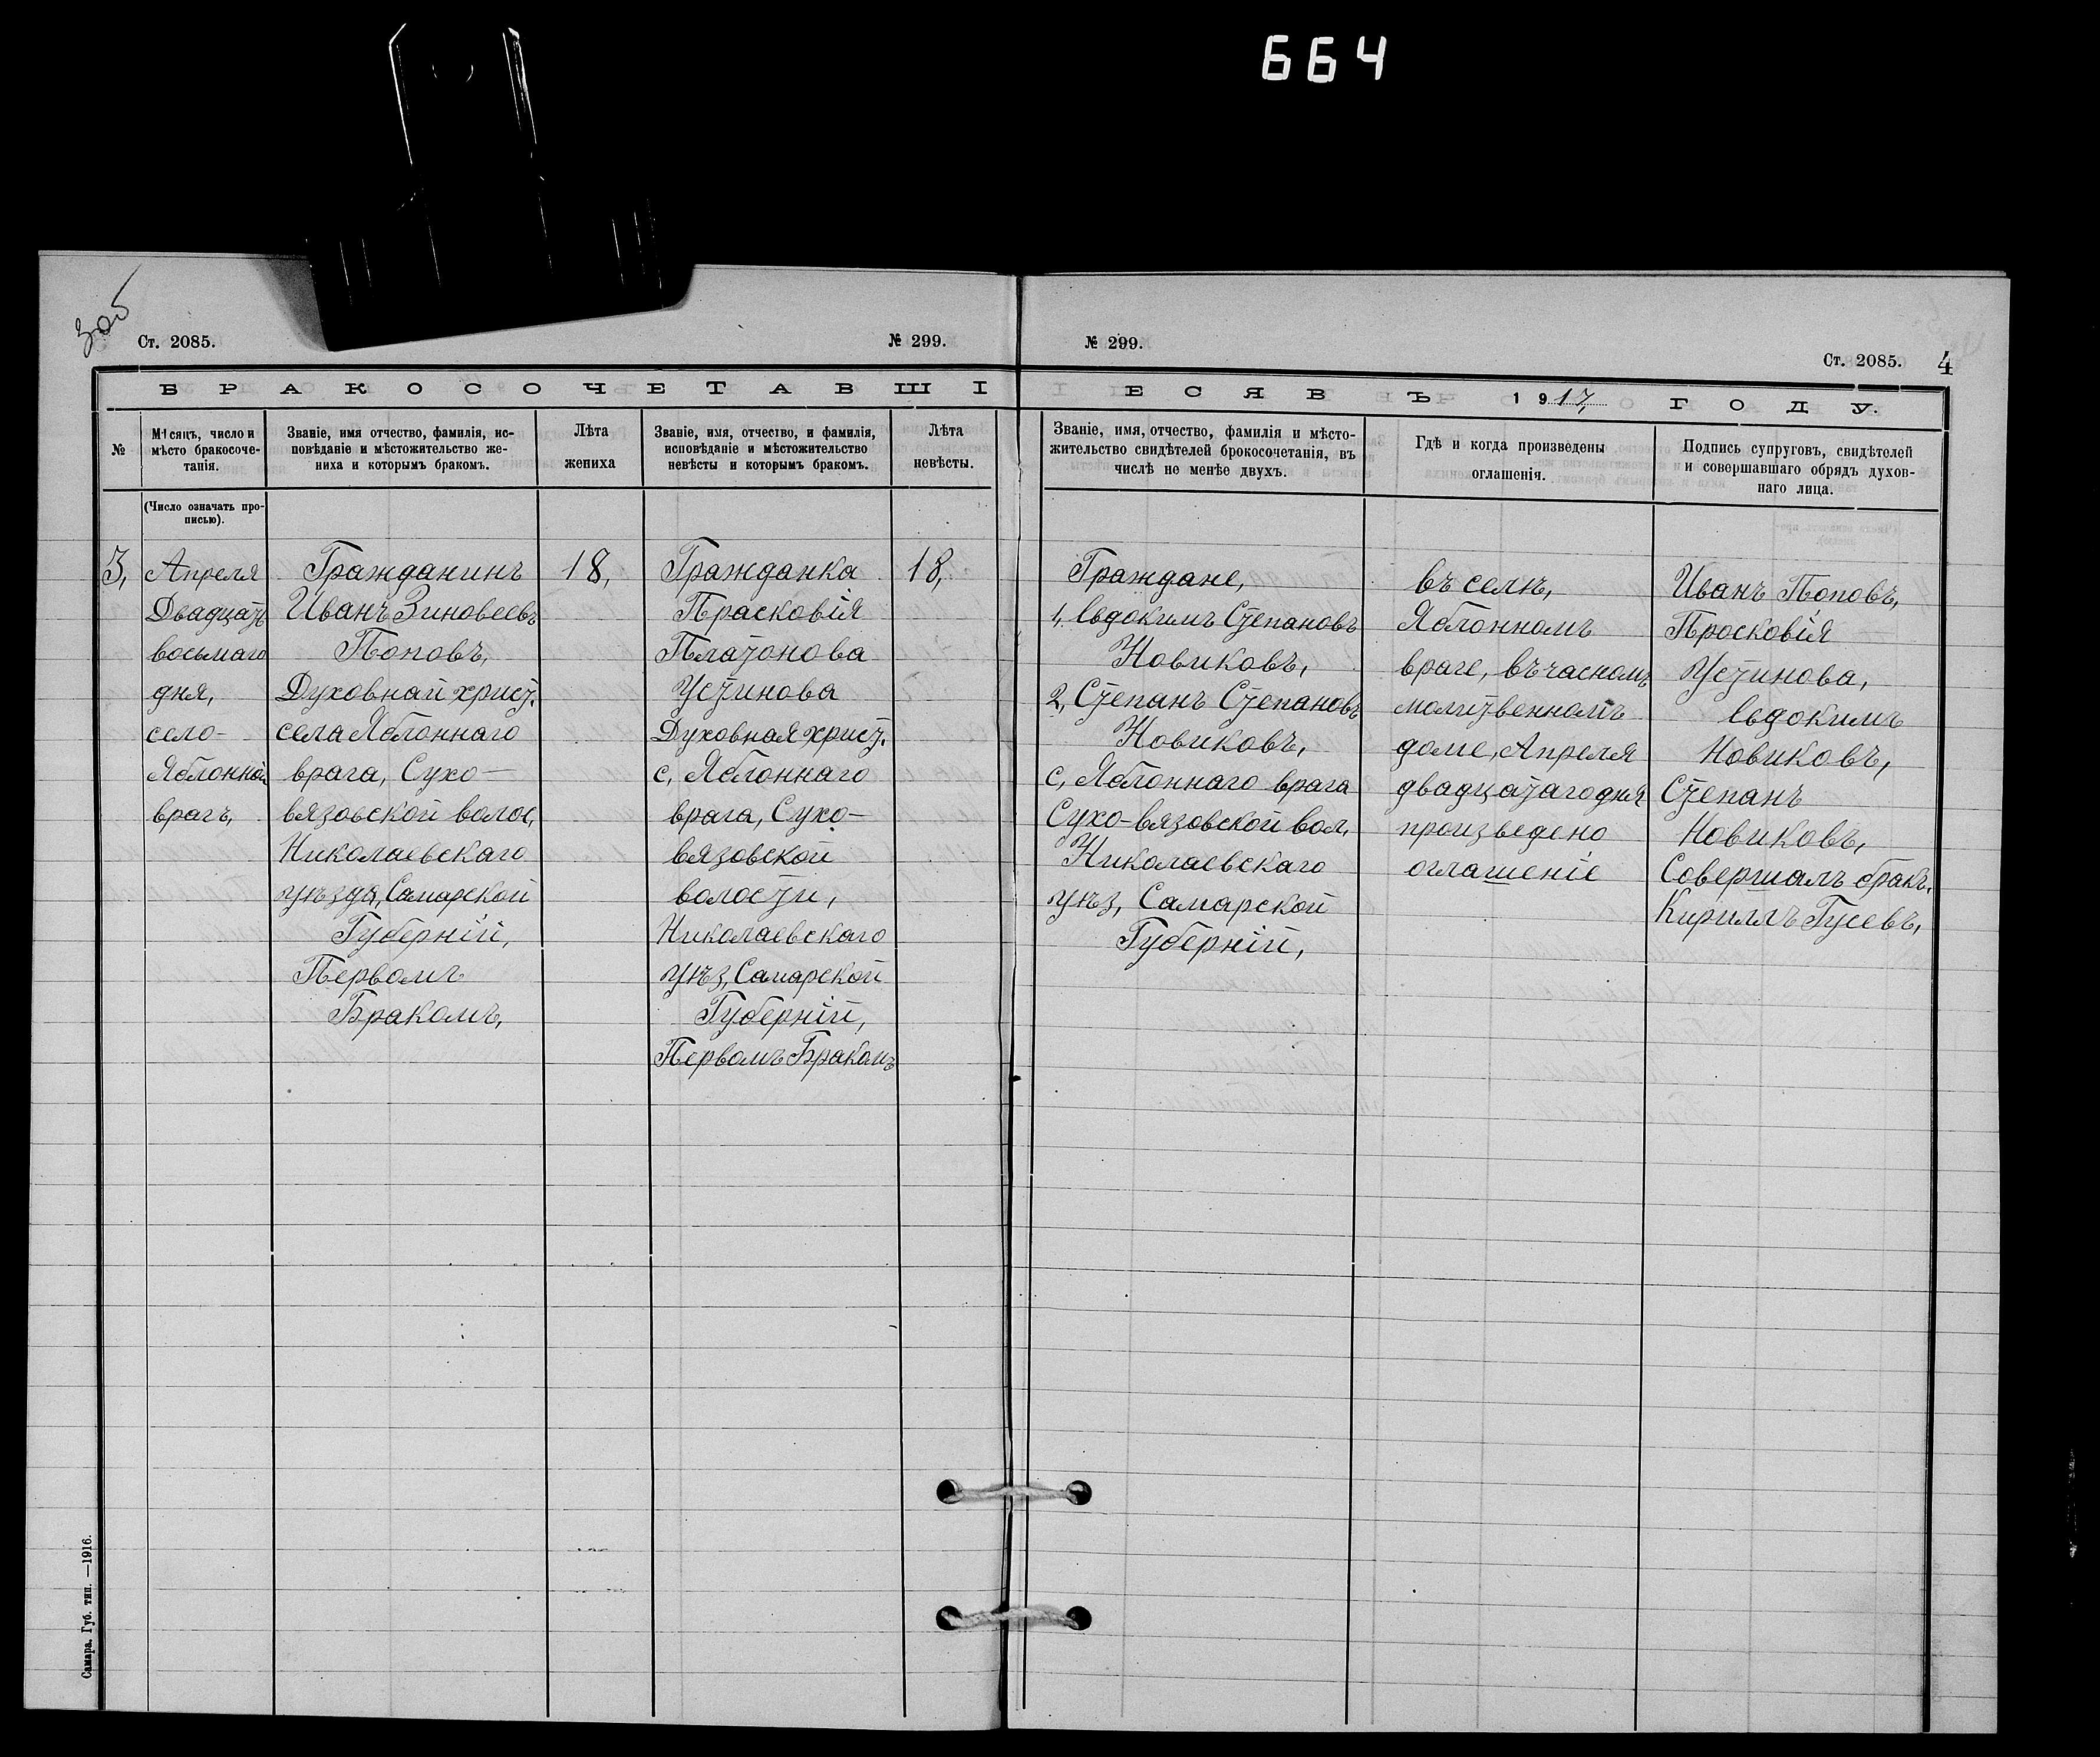 664
Ст. 2085.
№ 299.
№ 299.
Ст. 2085.
4
БРАКОСОЧЕТАВШІ
ІЕСЯ ВЪ 1917, ГОДУ.
№
Мѣсяцъ, число и
мѣсто бракосоче-
танія.
Званіе, имя отчество, фамилія, ис-
повѣданіе и мѣстожительство же-
ниха и которымъ бракомъ.
Лѣта
жениха
Званіе, имя, отчество, и фамилія,
исповѣданіе и мѣстожительство
невѣсты и которымъ бракомъ.
Лѣта
невѣсты.
Званіе, имя, отчество, фамилія и мѣсто-
жительство свидѣтелей брокосочетанія, въ
числѣ не менѣе двухъ.
Гдѣ и когда произведены
оглашенія.
Подпись супруговъ, свидѣтелей
и совершавшаго обрядъ духов-
наго лица.
(Число означать про-
писью).
3,
Апреля
Двадцать
восьмаго
дня,
село-
Яблонной
врагъ,
Гражданинъ
Иванъ Зиновеевъ
Поповъ,
Духовнай христ.
села Яблоннаго
врага, Сухо-
вязовской волос,
Николаевскаго
уѣзда, Самарской
Губерніи,
Первомъ
Бракомъ,
18,
Гражданка
Прасковія
Платонова
Устинова
Духовная христ.
с, Яблоннаго
врага, Сухо-
вязовской
волости,
Николаевскаго
уѣз, Самарской
Губерніи,
Первомъ Бракомъ
18,
Граждане,
1, Евдокимъ Степановъ
Новиковъ,
2, Степанъ Степановъ
Новиковъ,
с, Яблоннаго врага
Сухо-вязовской вол,
Николаевскаго
уѣз, Самарской
Губерніи,
въ селѣ,
Яблонномъ
враге, въ часномъ
молитвенномъ
доме, Апреля
двадцатаго дня
произведено
оглашеніе
Иванъ Поповъ,
Просковія
Устинова,
Евдокимъ
Новиковъ,
Степанъ
Новиковъ,
Совершалъ бракъ,
Кириллъ Гусевъ,
Самара, Губ. тип. —1916.